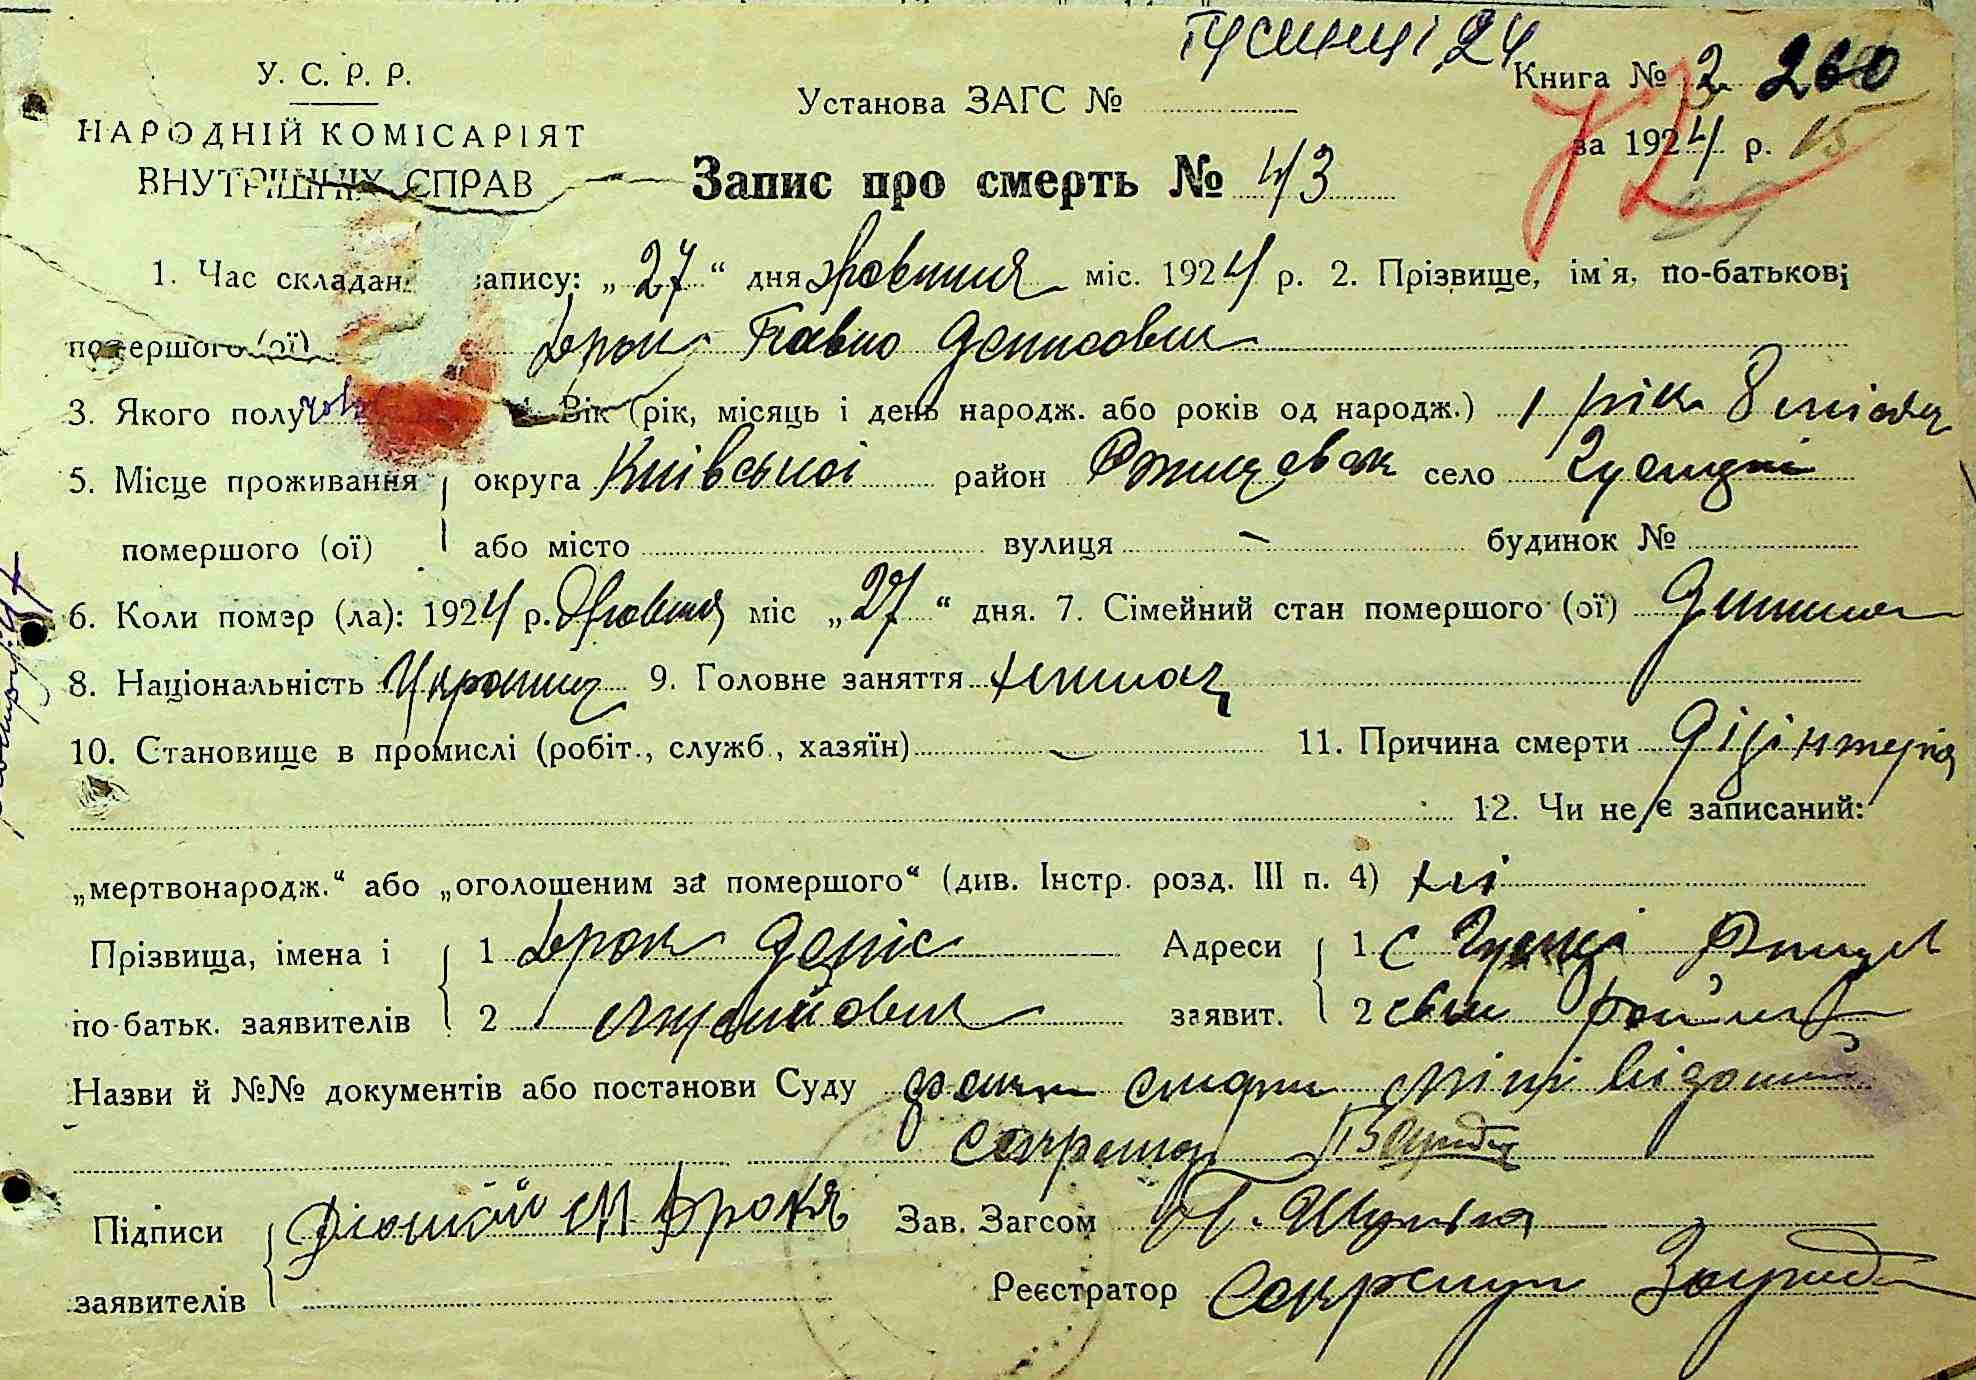 Гусинці 24
У. С. Р. Р.
Книга № 3 260
Установа ЗАГС №
НАРОДНІЙ КОМІСАРІЯТ
за 1924 р. 15
ВНУТРІШНІХ СПРАВ
Запис про смерть № 43
1. Час складан запису: „27“ дня Жовтня міс. 1924 р. 2. Прізвище, ім'я, по-батькові
помершого (ої) Брок Павло Денисович
3. Якого полу чол 4. Вік (рік, місяць і день народж. або років од народж.) 1 рік 8 місяц
5. Місце проживання округа Київської район Ржищевск село Гусинці
помершого (ої) або місто вулиця — будинок №
6. Коли помэр (ла): 1924 р. Жовтня міс „27“ дня. 7. Сімейний стан помершого (ої) Дитина
8. Національність Українц 9. Головне заняття
10. Становище в промислі (робіт., служб., хазяїн) — 11. Причина смерти Дізінтерія
12. Чи не є записаний:
„мертвонародж.“ або „оголошеним за помершого“ (див. Інстр. розд. III п. 4) ні
Прізвища, імена і 1 Брок Деніс Адреси 1 с Гусинці
по-батьк. заявителів 2 заявит. 2
Назви й №№ документів або постанови Суду факт смерти міні відомий
Секретар
Підписи Брока Зав. Загсом Шульга
заявителів Реєстратор Секретар